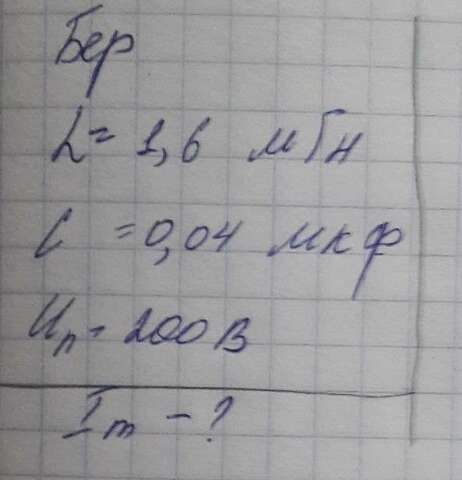 Бер
L = 1,6 мГн
C = 0,04 мкф
Un = 200 В
Im - ?